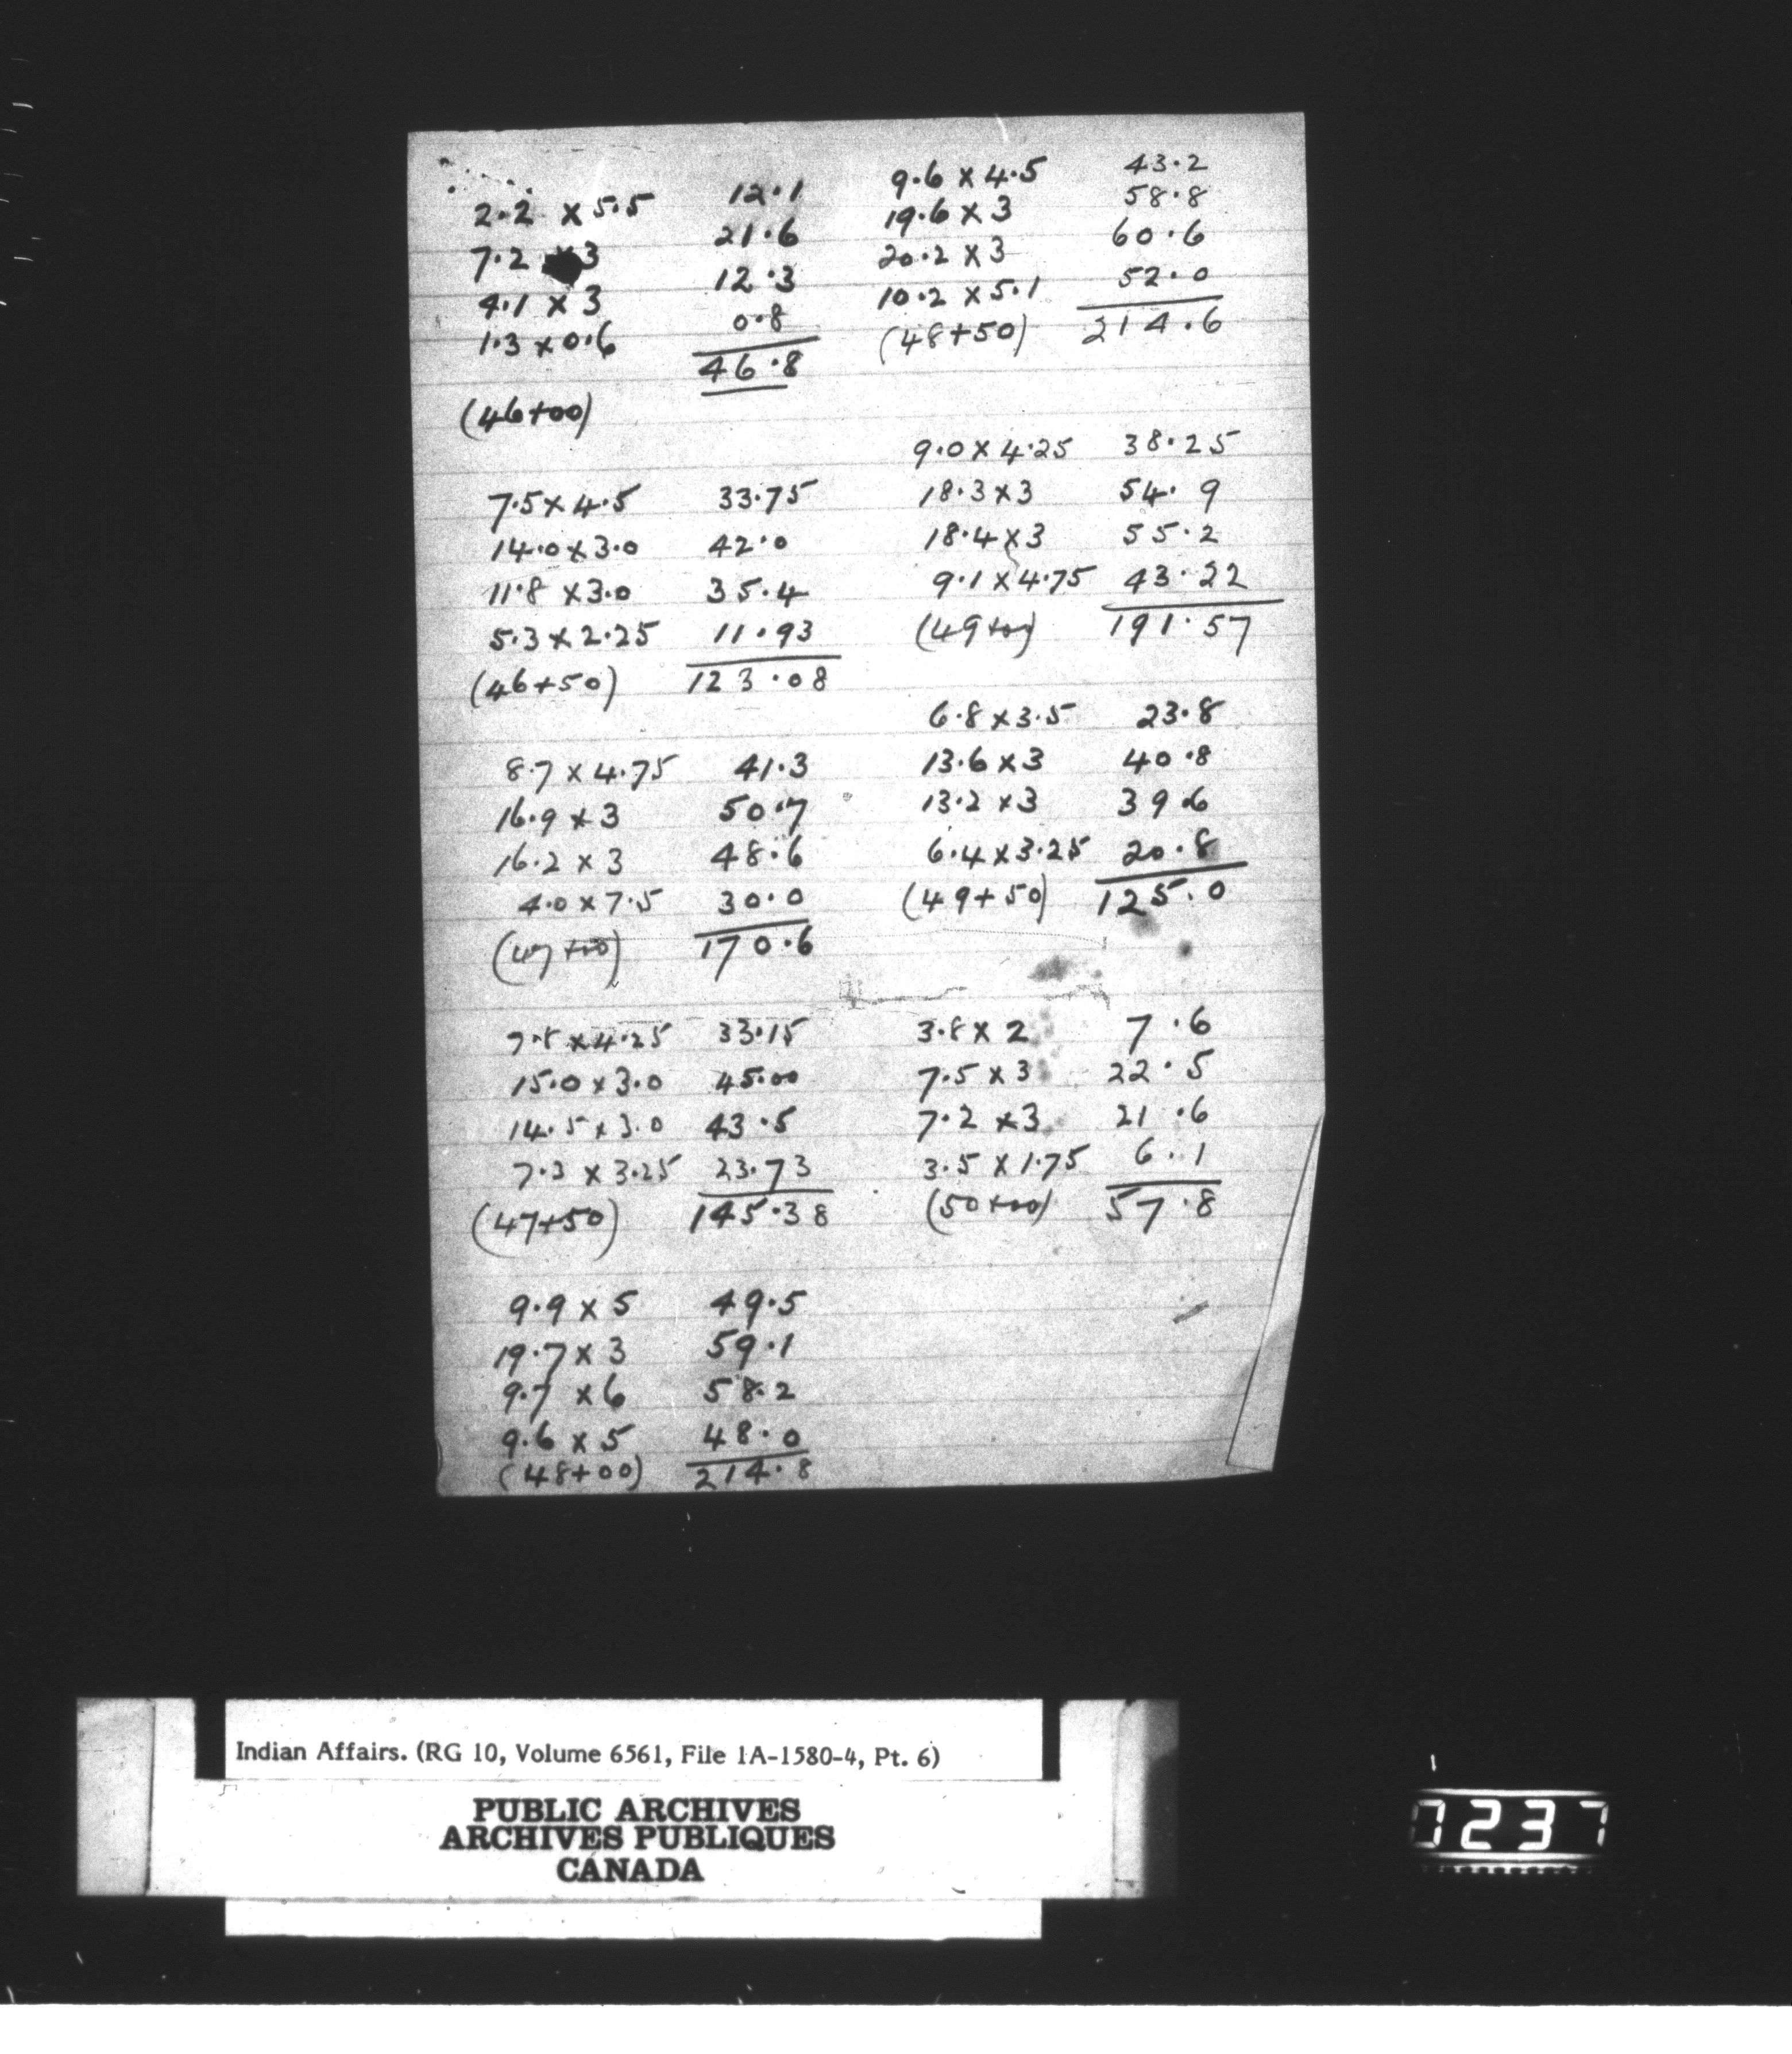 2.2 x 5.5 12.1
7.2 x 3 21.6
4.1 x 3 12.3
1.3 x 0.6 0.8
46.8
(46+00)
7.5 x 4.5 33.75
14.0 x 3.0 42.0
11.8 x 3.0 35.4
5.3 x 2.25 11.93
(46+50) 123.08
8.7 x 4.75 41.3
16.9 x 3 50.7
16.2 x 3 48.6
4.0 x 7.5 30.0
(47+00) 170.6
7.8 x 4.25 33.15
15.0 x 3.0 45.00
14.5 x 3.0 43.5
7.3 x 3.25 23.73
(47+50) 145.38
9.9 x 5 49.5
19.7 x 3 59.1
9.7 x 6 58.2
9.6 x 5 48.0
(48+00) 214.8
9.6 x 4.5 43.2
19.6 x 3 58.8
20.2 x 3 60.6
10.2 x 5.1 52.0
(48+50) 214.6
9.0 x 4.25 38.25
18.3 x 3 54.9
18.4 x 3 55.2
9.1 x 4.75 43.22
(49+00) 191.57
6.8 x 3.5 23.8
13.6 x 3 40.8
13.2 x 3 39.6
6.4 x 3.25 20.8
(49+50) 125.0
3.8 x 2 7.6
7.5 x 3 22.5
7.2 x 3 21.6
3.5 x 1.75 6.1
(50+00) 57.8
Indian Affairs. (RG 10, Volume 6561, File 1A-1580-4, Pt. 6)
PUBLIC ARCHIVES
ARCHIVES PUBLIQUES
CANADA
0237